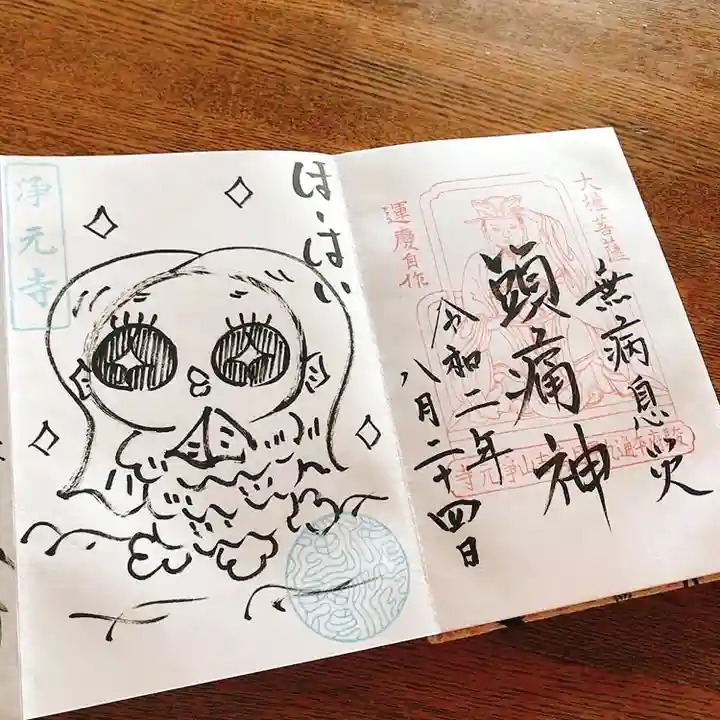 大権菩薩
無病息災
頭痛神
令和二年
八月二十四日
運慶自作
は・はい
浄元寺